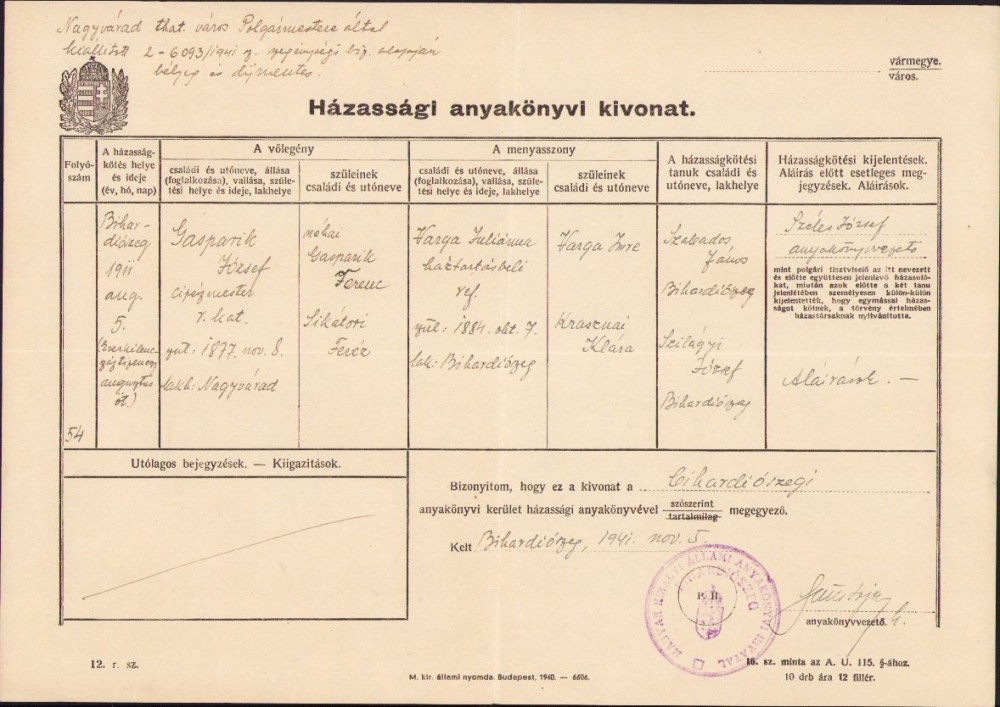 Nagyvárad that. város Polgármestere által
kiállított 2-6093/1941 sz. szegénységi biz. alapján
bélyeg és díjmentes.
vármegye.
város.
Házassági anyakönyvi kivonat.
Folyó-
szám
A házasság-
kötés helye
és ideje
(év, hó, nap)
A vőlegény
családi és utóneve, állása
(foglalkozása), vallása, szüle-
tési helye és ideje, lakhelye
szüleinek
családi és utóneve
A menyasszony
családi és utóneve, állása
(foglalkozása), vallása, szüle-
tési helye és ideje, lakhelye
szüleinek
családi és utóneve
A házasságkötési
tanuk családi és
utóneve, lakhelye
Házasságkötési kijelentések.
Aláírás előtt esetleges meg-
jegyzések. Aláírások.
54
Bihar-
diószeg
1911
aug.
5.
(Ezerkilenc-
száztizenegy
augusztus
öt.)
Gasparik
József
cipészmester
r. kat.
szül: 1877. nov. 8.
lakh: Nagyvárad
néhai
Gasparik
Ferenc
Sikátori
Teréz
Varga Juliánna
háztartásbeli
ref.
szül: 1884. okt. 7.
lak: Bihardiószeg
Varga Imre
Krasznai
Klára
Szabados
János
Bihardiószeg
Szilágyi
József
Bihardiószeg
Széles József
anyakönyvvezető
mint polgári tisztviselő az itt nevezett
és előtte együttesen jelenlevő házasuló-
kat, miután azok előtte a két tanu
jelenlétében személyesen külön-külön
kijelentették, hogy egymással házas-
ságot kötnek, a törvény értelmében
házastársaknak nyilvánította.
Aláírások. —
Utólagos bejegyzések. — Kiigazítások.
Bizonyítom, hogy ez a kivonat a bihardiószegi
anyakönyvi kerület házassági anyakönyvével szószerint
tartalmilag megegyező.
Kelt Bihardiószeg, 1941. nov. 5.
MAGYAR KIRÁLYI ÁLLAMI ANYAKÖNYVI HIVATAL
BIHARDIÓSZEG
P. H.
anyakönyvvezető
12. r. sz.
M. kir. állami nyomda. Budapest, 1940. — 6606.
16. sz. minta az A. U. 115. §-ához.
10 drb ára 12 fillér.